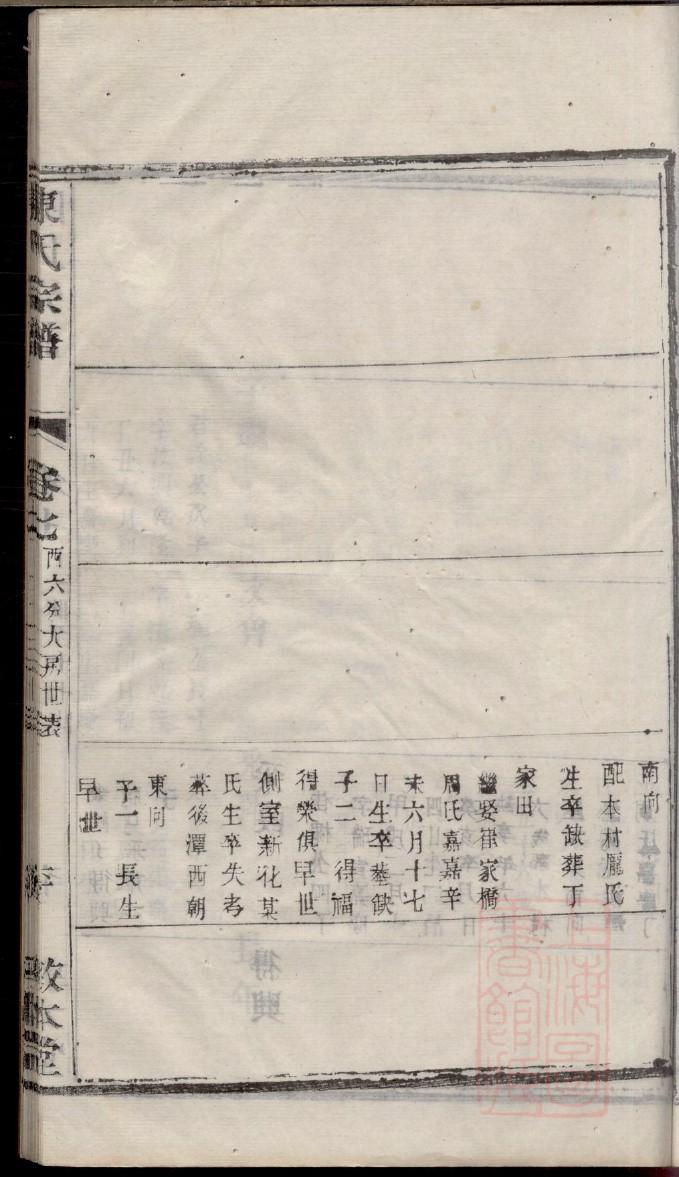 南向
配本村龐氏
生卒缺葬丁
家田
繼娶崔家橋
周氏嘉嘉辛
未六月十七
日生卒墓缺
子二 得福
得榮俱早世
側室新化某
氏生卒失考
葬後潭西朝
東向
子一 長生
早世
陳氏宗譜
卷七
西六分大房世表
敦本堂